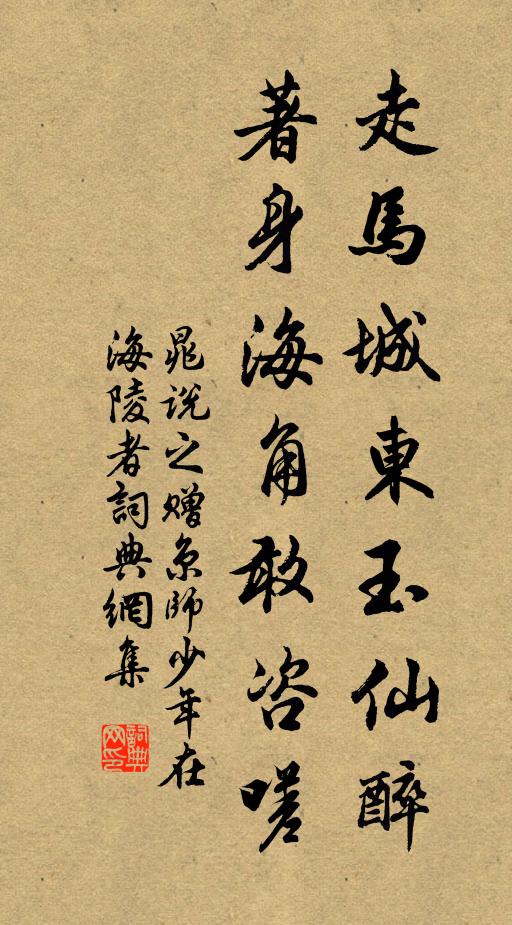 走馬城東玉仙醉
著身海角敢咨嗟
晁說之贈京師少年在
海陵者詞典網集
詞典
网印